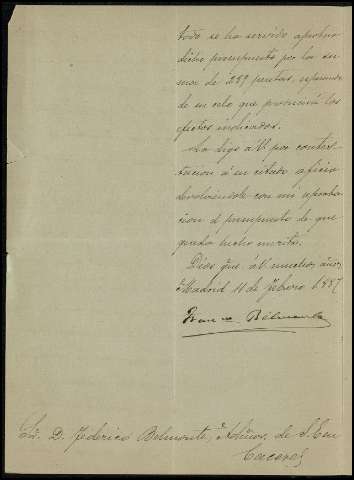 todo se ha servido aprobar
dicho presupuesto por la su
ma de 289 pesetas,
de su celo que procurará los
efectos indicados.
Lo digo á V. por contes
tacion á su citado oficio
devolviéndole con mi aproba
cion el presupuesto de que
queda hecho merito.
Dios gue. á V. muchos años
Madrid 11 de febrero 1887
Belmonte
Sr. D. Federico Belmonte, de S. en
Caceres